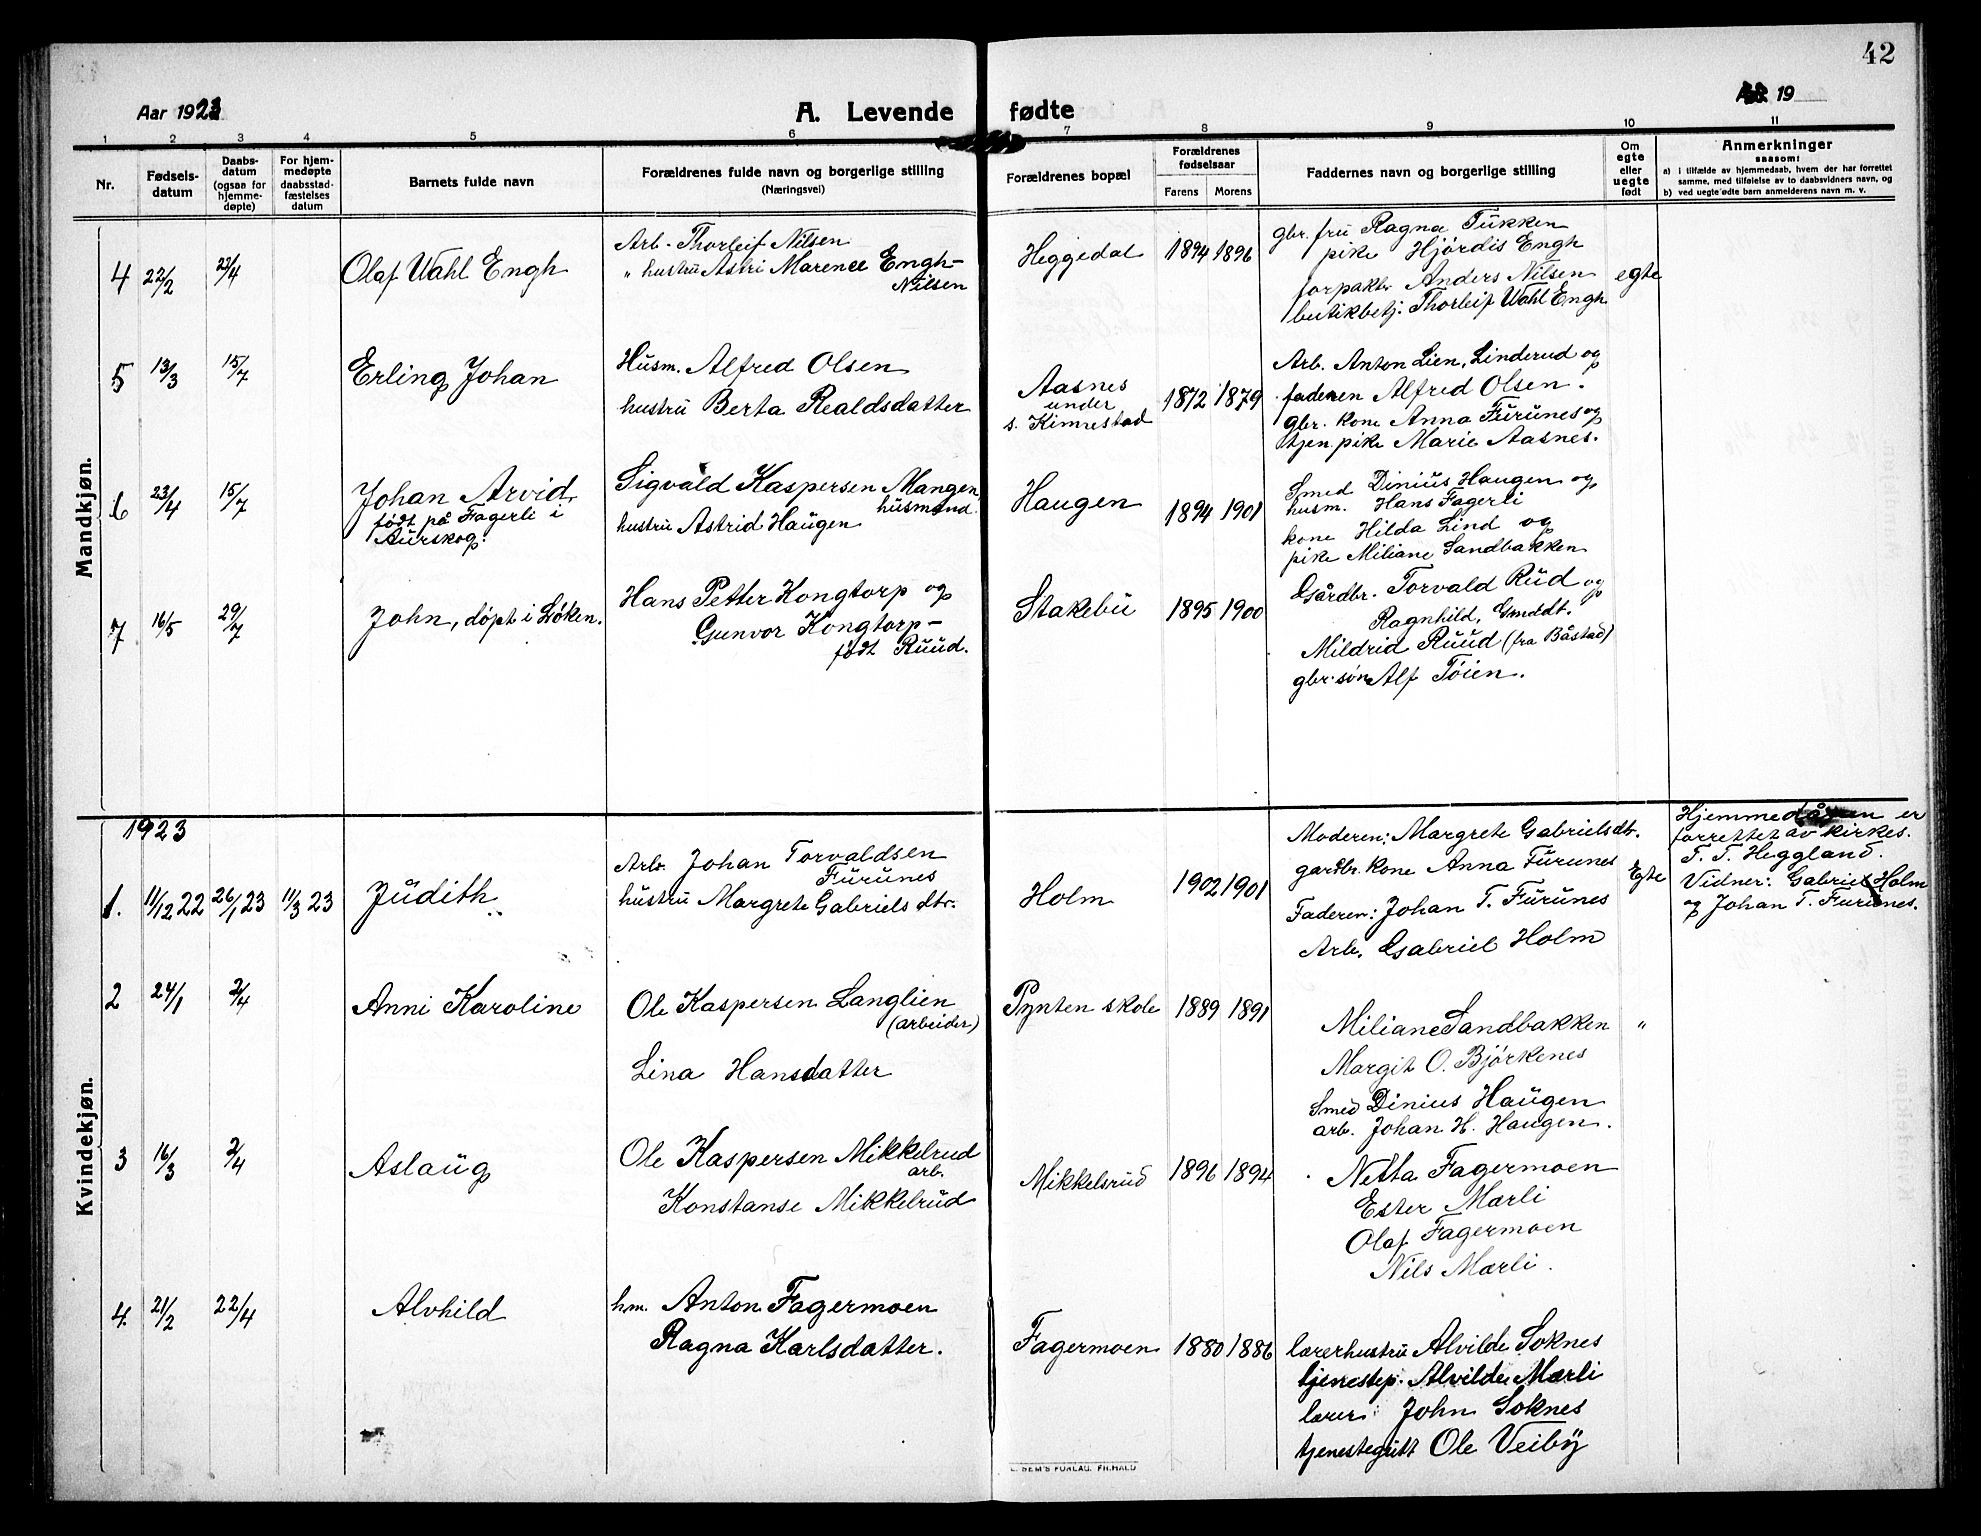 42
Aar 1923
A. Levende fødte
19
1 2 3 4 5 6 7 8 9 10 11
Nr.
Fødsels-
datum
Daabs-
datum
(ogsaa for
hjemme-
døpte)
For hjem-
medøpte
daabsstad-
fæstelses
datum
Barnets fulde navn
Forældrenes fulde navn og borgerlige stilling
(Næringsvei)
Forældrenes bopæl
Forældrenes
fødselsaar
Farens Morens
Faddernes navn og borgerlige stilling
Om
egte
eller
uegte
født
Anmerkninger
saasom:
a) i tilfælde av hjemmedaab, hvem der har forrettet
samme, med tilføielse av to daabsvidners navn, og
b) ved uegte fødte barn anmelderens navn m. v.
Mandkjøn.
4 22/2 22/4
Olaf Wahl Engh
Arb. Thorleif Nilsen
" hustru Astri Marence Engh-
Nilsen
Heggedal
1894 1896
gbr. fru Ragna Tukken
pike Hjørdis Engh
forpaktr Anders Nilsen
butikbetj. Thorleif Wahl Engh
egte
5 13/3 15/7
Erling Johan
Husm. Alfred Olsen
hustru Berta Realdsdatter
Aasnes
under
s. Kinnestad
1872 1879
Arb. Anton Lien, Linderud og
faderen Alfred Olsen.
gbr. kone Anna Furunes og
tjen. pike Marie Aasnes.
6 23/4 15/7
Johan Arvid,
født på Fagerli i
Aurskog.
Sigvald Kaspersen Mangen,
husmand.
hustru Astrid Haugen
Haugen
1894 1901
Smed Dinius Haugen og
husm. Hans Fagerli
kone Hilda Lind og
pike Miliane Sandbakken
7 16/5 29/7
John, døpt i Løken.
Hans Petter Kongtorp og
Gunvor Kongtorp-
født Ruud.
Stakebu
1895 1900
Gårdbr. Torvald Rud og
Ragnhild,
Mildrid Ruud (fra Båstad)
gbr.søn Alf Tøien.
Kvindekjøn.
1923
1. 11/12 22 26/1 23 11/3 23
Judith
Arb. Johan Torvaldsen
Furunes
hustru Margrete Gabrielsdtr.
Holm
1902 1901
Moderen: Margrete Gabrielsdtr.
gardbr. kone Anna Furunes
Faderen: Johan T. Furunes
Arb. Gabriel Holm
Egte
Hjemmedåpen er
forrettet av kirkes.
T. T. Heggland.
Vidner: Gabriel Holm
og Johan T. Furunes.
2 24/1 2/4
Anni Karoline
Ole Kaspersen Langlien
(arbeider)
Lina Hansdatter
Pynten skole
1889 1891
Miliane Sandbakken
Margit O. Bjørkenes
Smed Dinius Haugen
arb. Johan H. Haugen.
"
3 16/3 2/4
Aslaug
Ole Kaspersen Mikkelrud
arb.
Konstanse Mikkelrud
Mikkelsrud
1896 1894
Netta Fagermoen
Ester Mærli
Olaf Fagermoen
Nils Mærli.
4. 21/2 22/4
Alvhild
hm. Anton Fagermoen
Ragna Karlsdatter.
Fagermoen
1880 1886
lærerhustru Alvilde Soknes
tjenestep. Alvilde Mærli
lærer John Soknes
tjenestegutt Ole Veiby
E. SEM'S FORLAG. FR.HALD